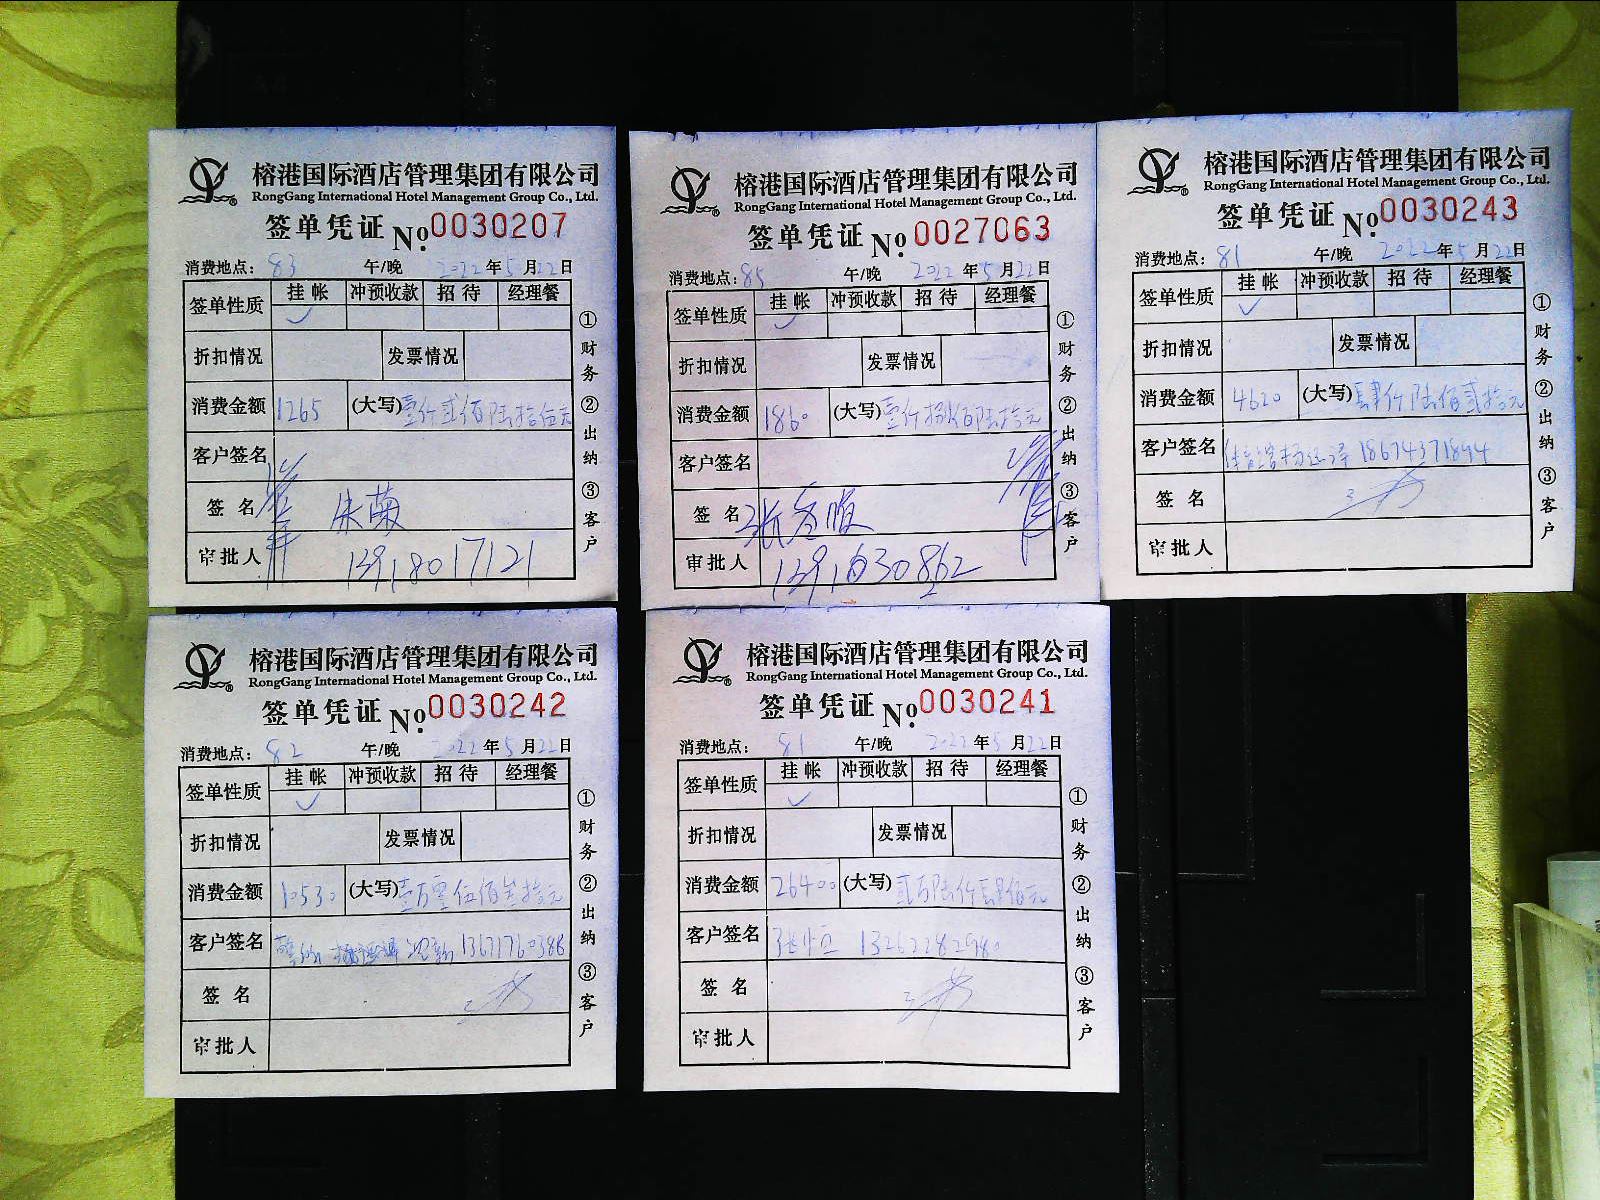 榕港国际酒店管理集团有限公司
RongGang International Hotel Management Group Co., Ltd.
签单凭证 №0030207
消费地点: 83 午/晚 2022年5月22日
签单性质 挂帐 冲预收款 招待 经理餐
✓
折扣情况 发票情况
消费金额 1265 (大写)壹仟贰佰陆拾伍元
客户签名
签名 朱菊
审批人 13918017121
①财务 ②出纳 ③客户
榕港国际酒店管理集团有限公司
RongGang International Hotel Management Group Co., Ltd.
签单凭证 №0027063
消费地点: 85 午/晚 2022年5月22日
签单性质 挂帐 冲预收款 招待 经理餐
✓
折扣情况 发票情况
消费金额 1860 (大写)壹仟捌佰陆拾元
客户签名
签名
审批人
①财务 ②出纳 ③客户
榕港国际酒店管理集团有限公司
RongGang International Hotel Management Group Co., Ltd.
签单凭证 №0030243
消费地点: 81 午/晚 2022年5月22日
签单性质 挂帐 冲预收款 招待 经理餐
✓
折扣情况 发票情况
消费金额 4620 (大写)肆仟陆佰贰拾元
客户签名 18674371894
签名
审批人
①财务 ②出纳 ③客户
榕港国际酒店管理集团有限公司
RongGang International Hotel Management Group Co., Ltd.
签单凭证 №0030242
消费地点: 82 午/晚 2022年5月22日
签单性质 挂帐 冲预收款 招待 经理餐
✓
折扣情况 发票情况
消费金额 10530 (大写)壹万零伍佰叁拾元
客户签名 13671760388
签名
审批人
①财务 ②出纳 ③客户
榕港国际酒店管理集团有限公司
RongGang International Hotel Management Group Co., Ltd.
签单凭证 №0030241
消费地点: 81 午/晚 2022年5月22日
签单性质 挂帐 冲预收款 招待 经理餐
✓
折扣情况 发票情况
消费金额 26400 (大写)贰万陆仟肆佰元
客户签名 13262282980
签名
审批人
①财务 ②出纳 ③客户